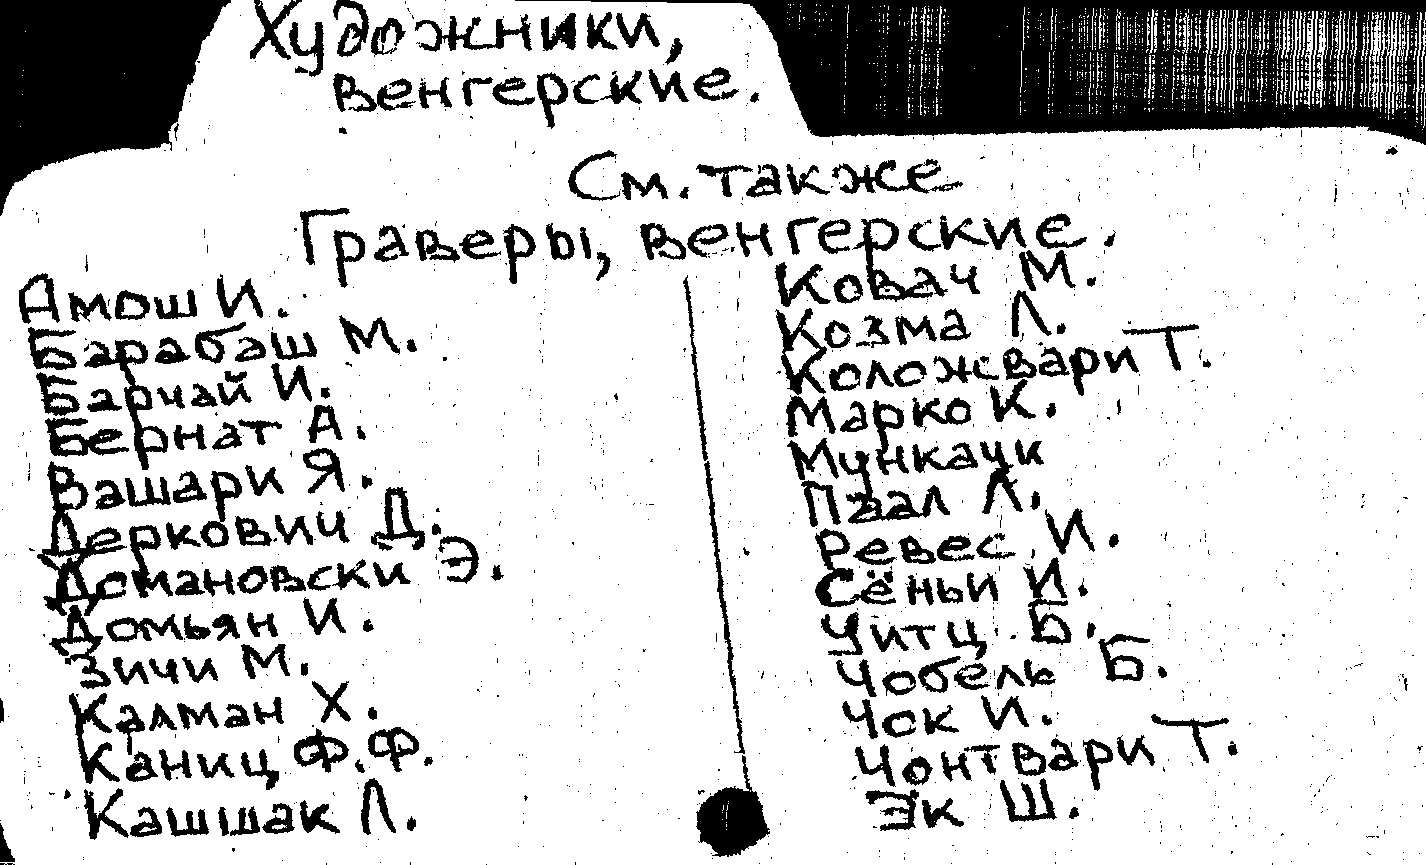 Художники,
венгерские.
См. также
Граверы, венгерские.
Амош И.
Барабаш М.
Барчай И.
Бернат А.
Вашари Я.
Деркович Д.
Домановски Э.
Домьян И.
Зичи М.
Калман Х.
Каниц Ф.Ф.
Кашшак Л.
Ковач М.
Козма Л.
Коложвари Т.
Марко К.
Мункачи
Паал Л.
Ревес И.
Сёньи И.
Уитц Б.
Чобель Б.
Чок И.
Чонтвари Т.
Эк Ш.